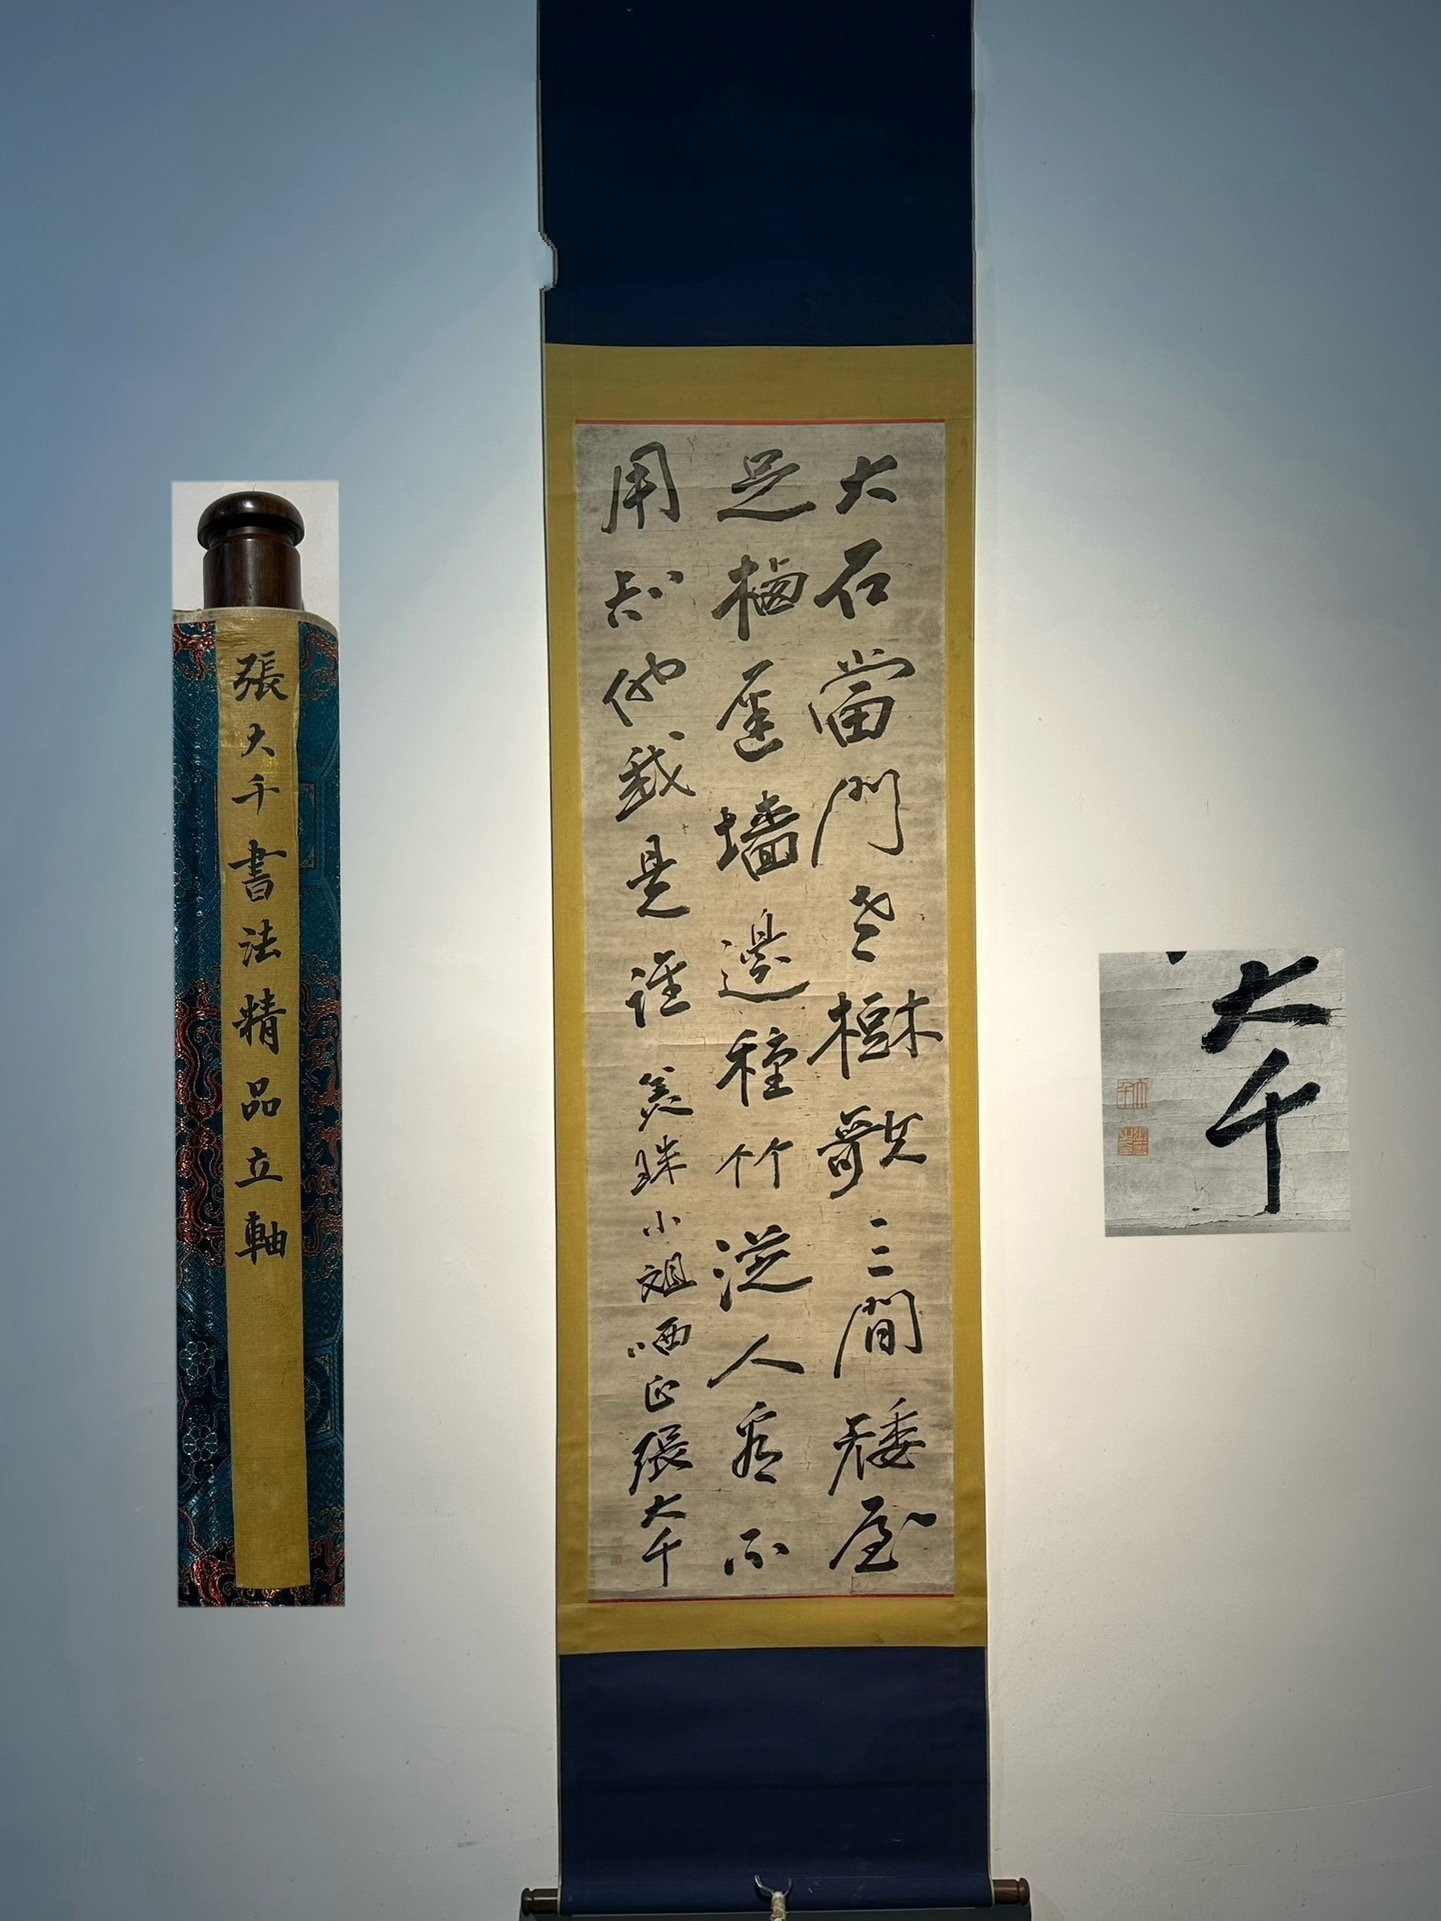 大石當門老樹欹三間矮屋
足棲遲墻邊種竹從人看不
用知他我是誰 美珠小姐哂正張大千
張大千書法精品立軸
大千